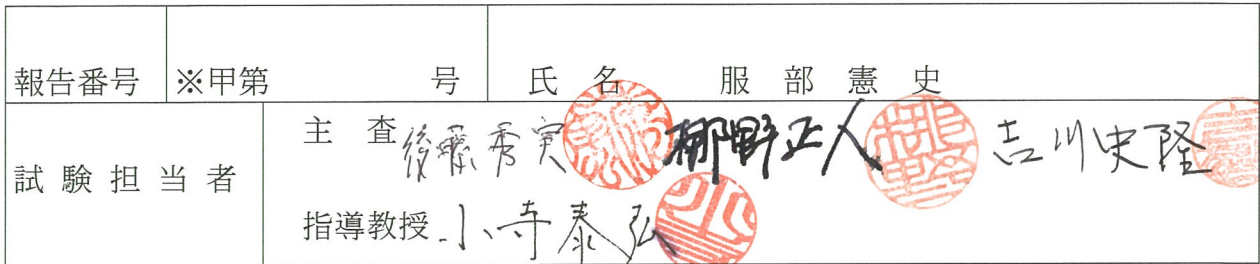 報告番号 ※甲第 号 氏名 服部憲史
試験担当者 主査 後藤秀実 梛野正人 吉川史隆
指導教授 小寺泰弘